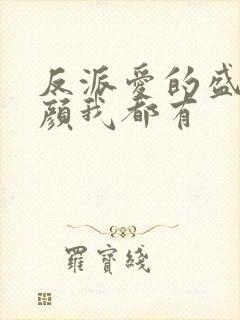 反派爱的盛
颜我都有
羅寶綫